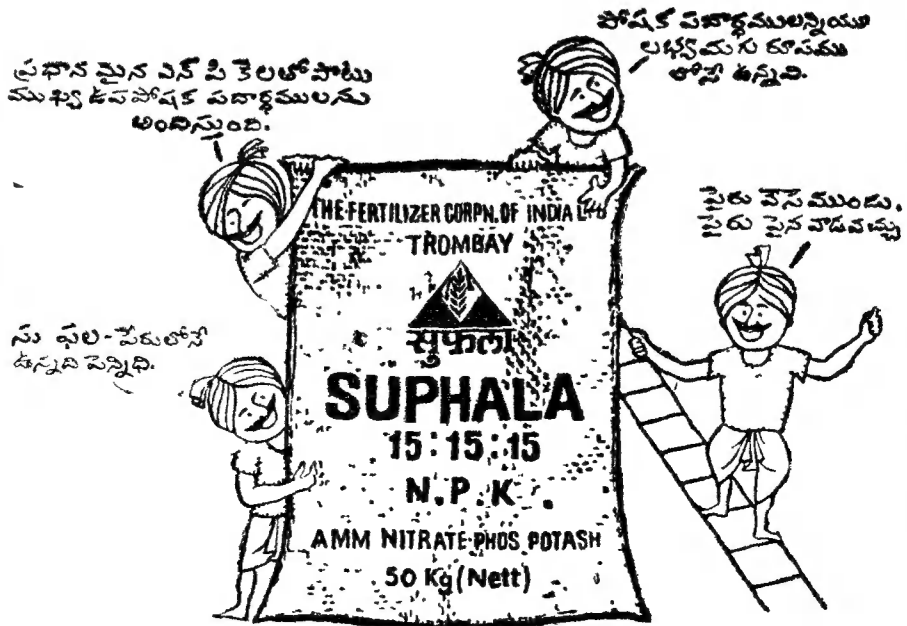 ప్రధాన మైన ఎన్ పి కెలతోపాటు
ముఖ్య ఉపపోషక పదార్థములను
అందిస్తుంది.
పోషక పదార్థములన్నియూ
లభ్యమగు రూపము
లోనే ఉన్నవి.
పైరు వేసేముండు.
పైరు పైన వాడవచ్చు
సు ఫల-పేరులోనే
ఉన్నది పెన్నిధి.
THE FERTILIZER CORPN. OF INDIA LTD
TROMBAY
सुफला
SUPHALA
15:15:15
N.P.K.
AMM NITRATE PHOS POTASH
50 Kg (Nett)